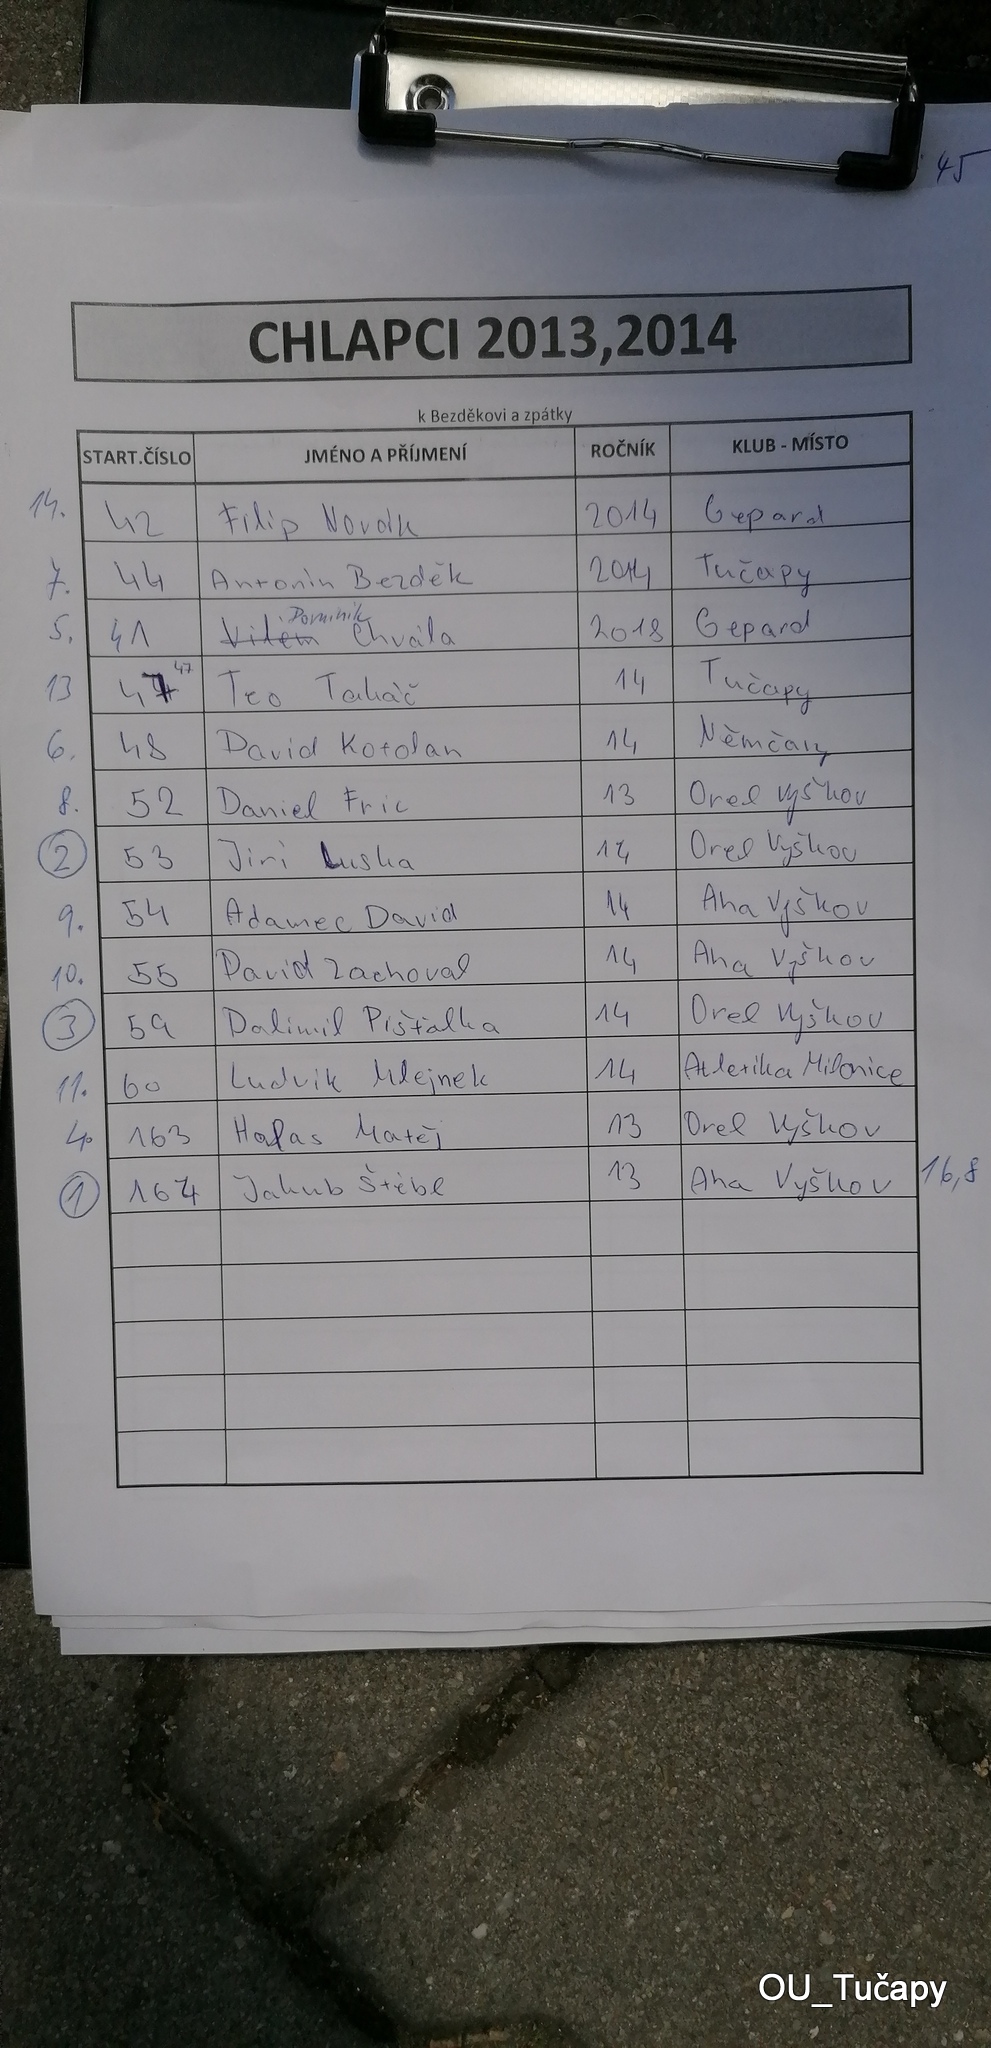 45
CHLAPCI 2013,2014
k Bezděkovi a zpátky
START.ČÍSLO JMÉNO A PŘÍJMENÍ ROČNÍK KLUB - MÍSTO
14. 42 Filip Novák 2014 Gepard
7. 44 Antonín Bezděk 2014 Tučapy
5. 41 Vilém Dominik Chvála 2013 Gepard
13 47 47 Teo Takáč 14 Tučapy
6. 48 David Kotolan 14 Němčany
8. 52 Daniel Fric 13 Orel Vyškov
2 53 Jiri Luska 14 Orel Vyškov
9. 54 Adamec David 14 Aha Vyškov
10. 55 David Zachoval 14 Aha Vyškov
3 59 Dalimil Píšťalka 14 Orel Vyškov
11. 60 Ludvik Mlejnek 14 Atletika Milonice
4. 163 Halas Matěj 13 Orel Vyškov
1 164 Jakub Štěbl 13 Aha Vyškov 16,8
OU_Tučapy